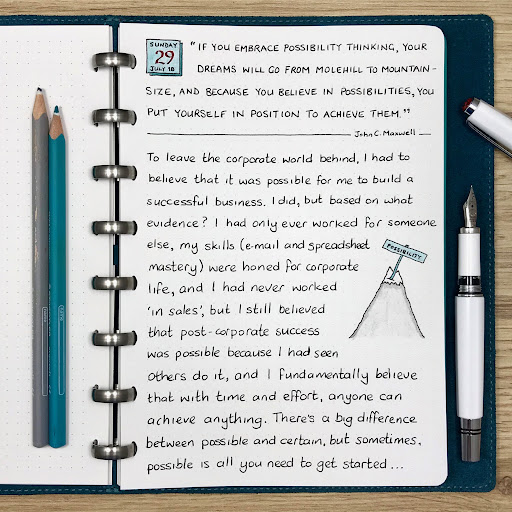 SUNDAY
29
JULY 18
"IF YOU EMBRACE POSSIBILITY THINKING, YOUR
DREAMS WILL GO FROM MOLEHILL TO MOUNTAIN-
SIZE, AND BECAUSE YOU BELIEVE IN POSSIBILITIES, YOU
PUT YOURSELF IN POSITION TO ACHIEVE THEM."
John C. Maxwell
To leave the corporate world behind, I had to
believe that it was possible for me to build a
successful business. I did, but based on what
evidence? I had only ever worked for someone
else, my skills (e-mail and spreadsheet
mastery) were honed for corporate
life, and I had never worked
'in sales', but I still believed
that post-corporate success
was possible because I had seen
others do it, and I fundamentally believe
that with time and effort, anyone can
achieve anything. There's a big difference
between possible and certain, but sometimes,
possible is all you need to get started...
POSSIBILITY